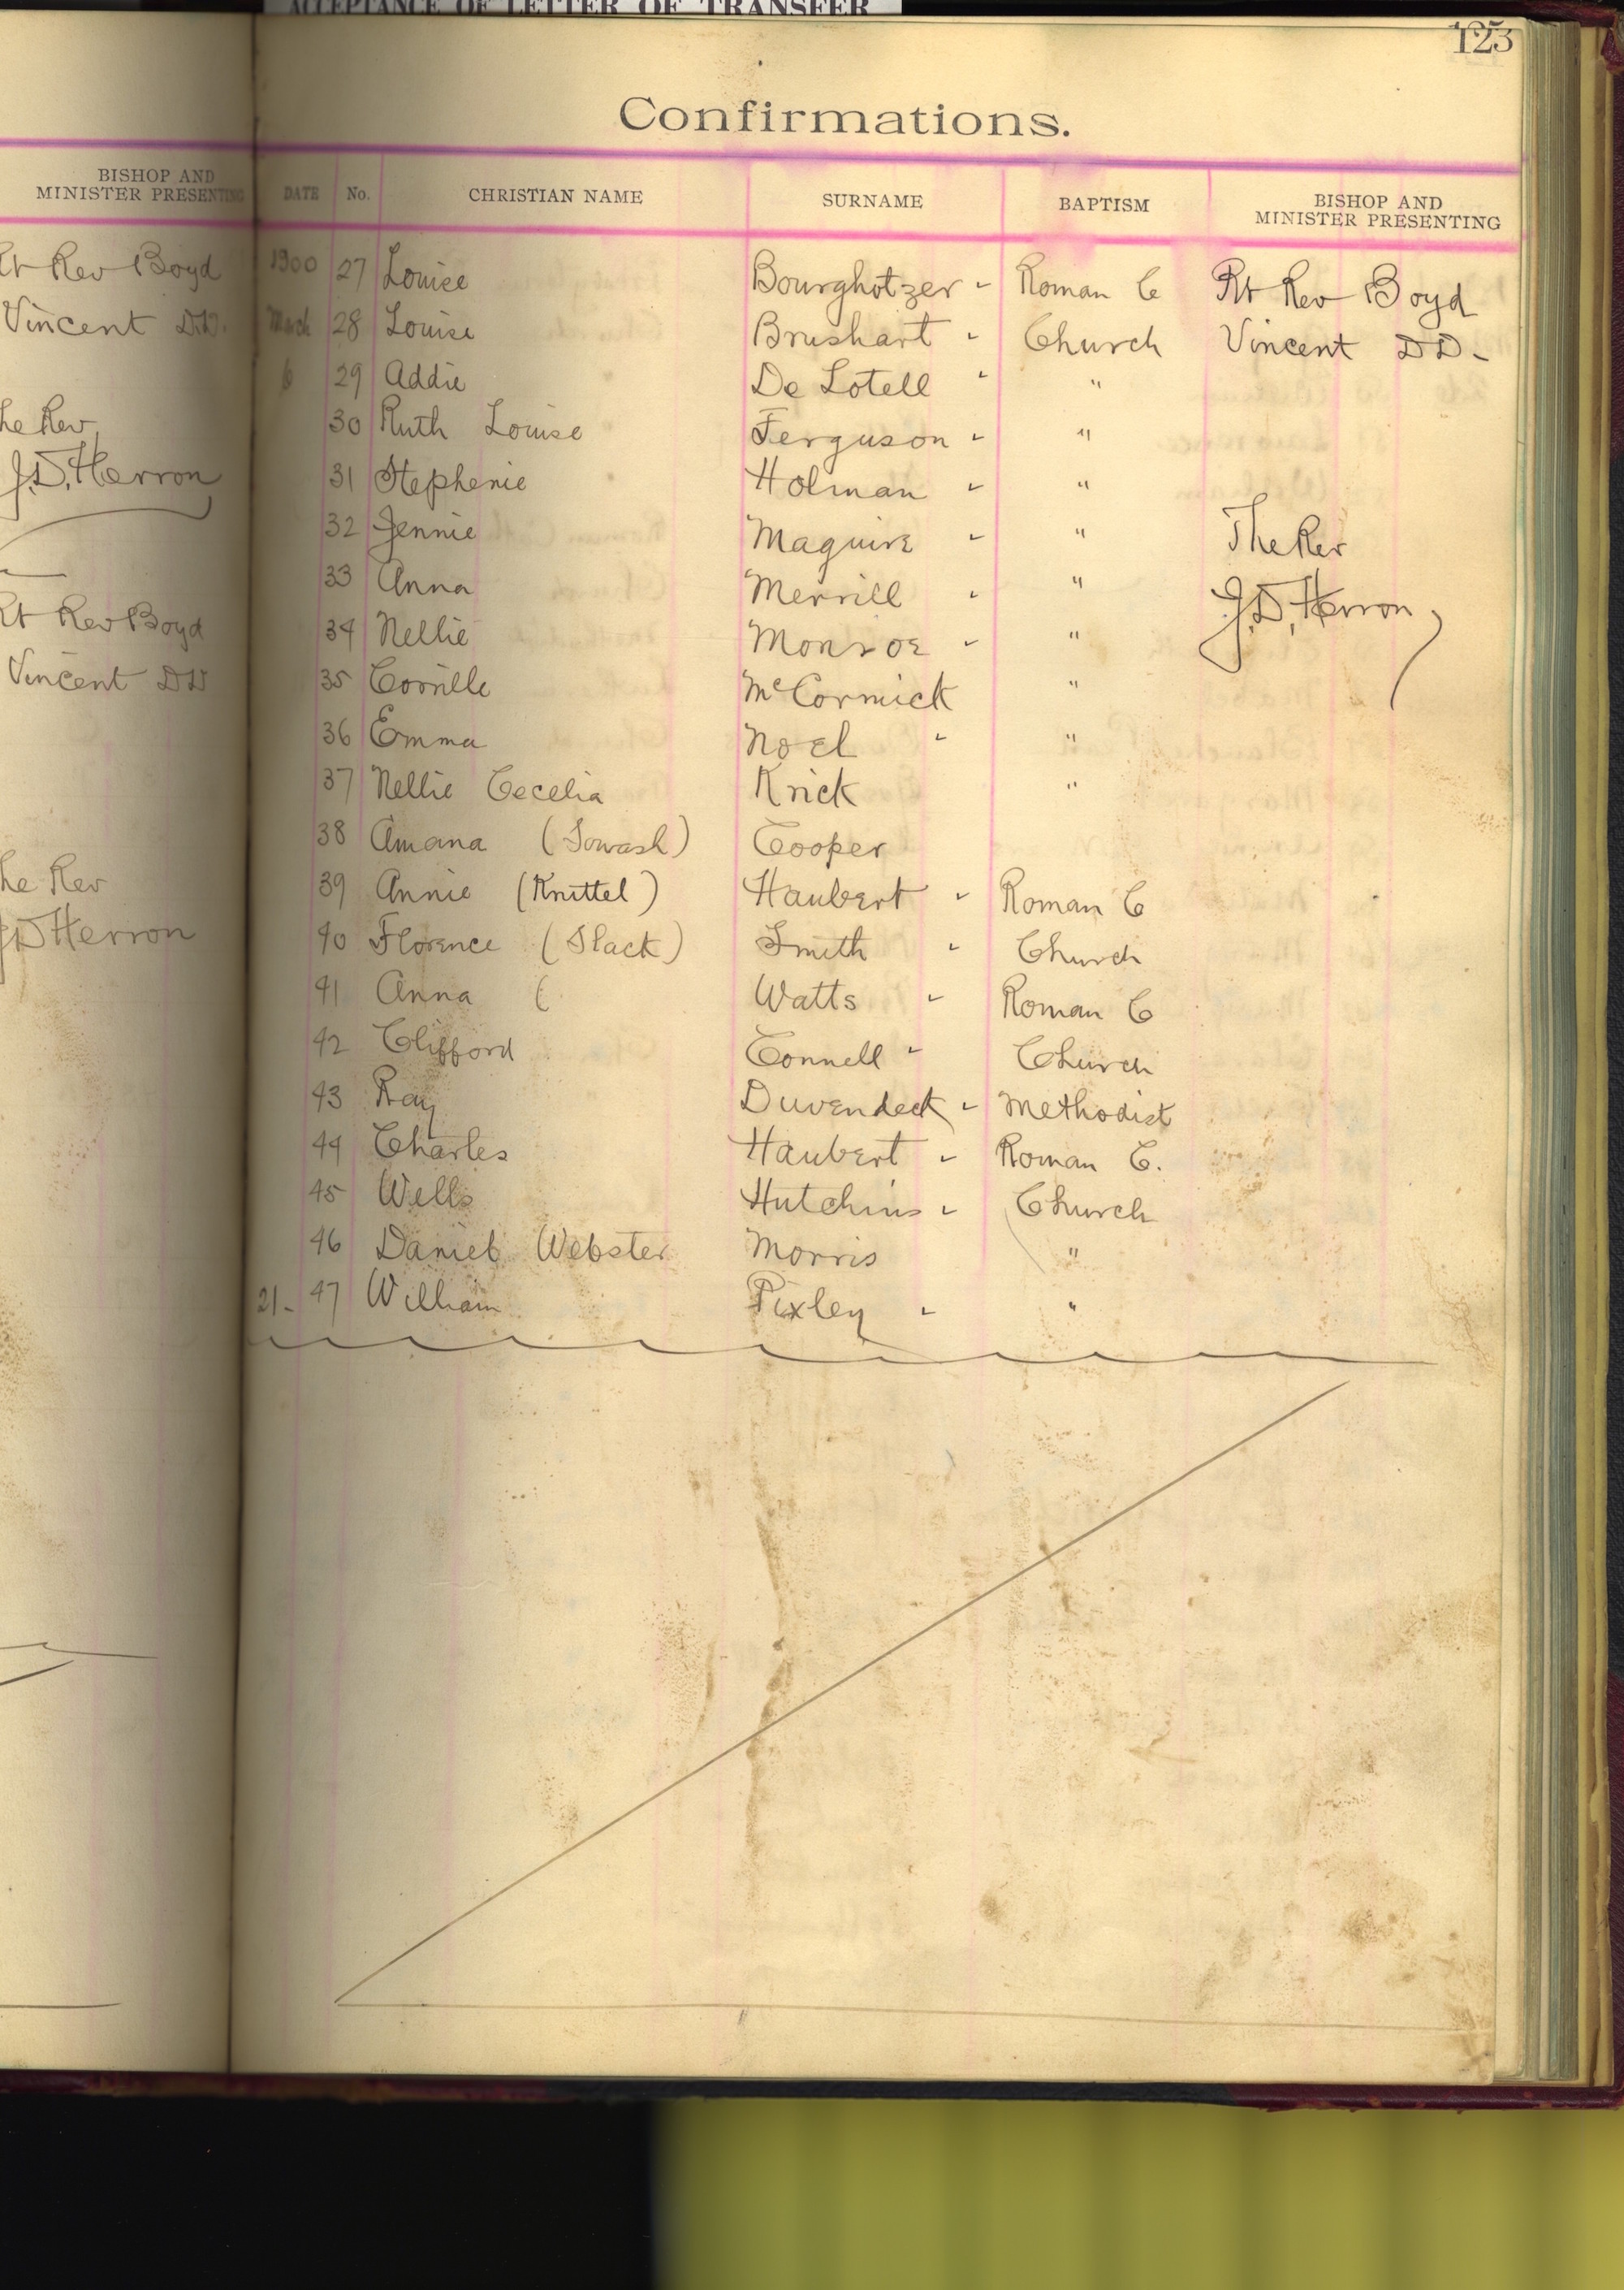 ACCEPTANCE OF LETTER OF TRANSFER
123
Confirmations.
BISHOP AND
MINISTER PRESENTING
Rt Rev Boyd
Vincent D.D.
The Rev
J.D. Herron
Rt Rev Boyd
Vincent DD
The Rev
JD Herron
DATE No. CHRISTIAN NAME SURNAME BAPTISM BISHOP AND
MINISTER PRESENTING
1900 27 Louise Bourghotzer " Roman C Rt Rev Boyd
March 28 Louise Brushart " Church Vincent DD-
6 29 Addie De Lotell " "
30 Ruth Louise Ferguson " "
31 Stephenie Holman " "
32 Jennie Maguire " " The Rev
33 Anna Merrill " " J.D. Herron
34 Nellie Monroe " "
35 Corrille McCormick "
36 Emma Noel " "
37 Nellie Cecelia Krick "
38 Amana (Sowash) Cooper
39 Annie (Knittel) Haubert " Roman C
40 Florence (Slack) Smith " Church
41 Anna ( Watts " Roman C
42 Clifford Connell " Church
43 Ray Duvendeck " Methodist
44 Charles Haubert " Roman C.
45 Wells Hutchins " Church
46 Daniel Webster Morris "
21- 47 William Pixley " "